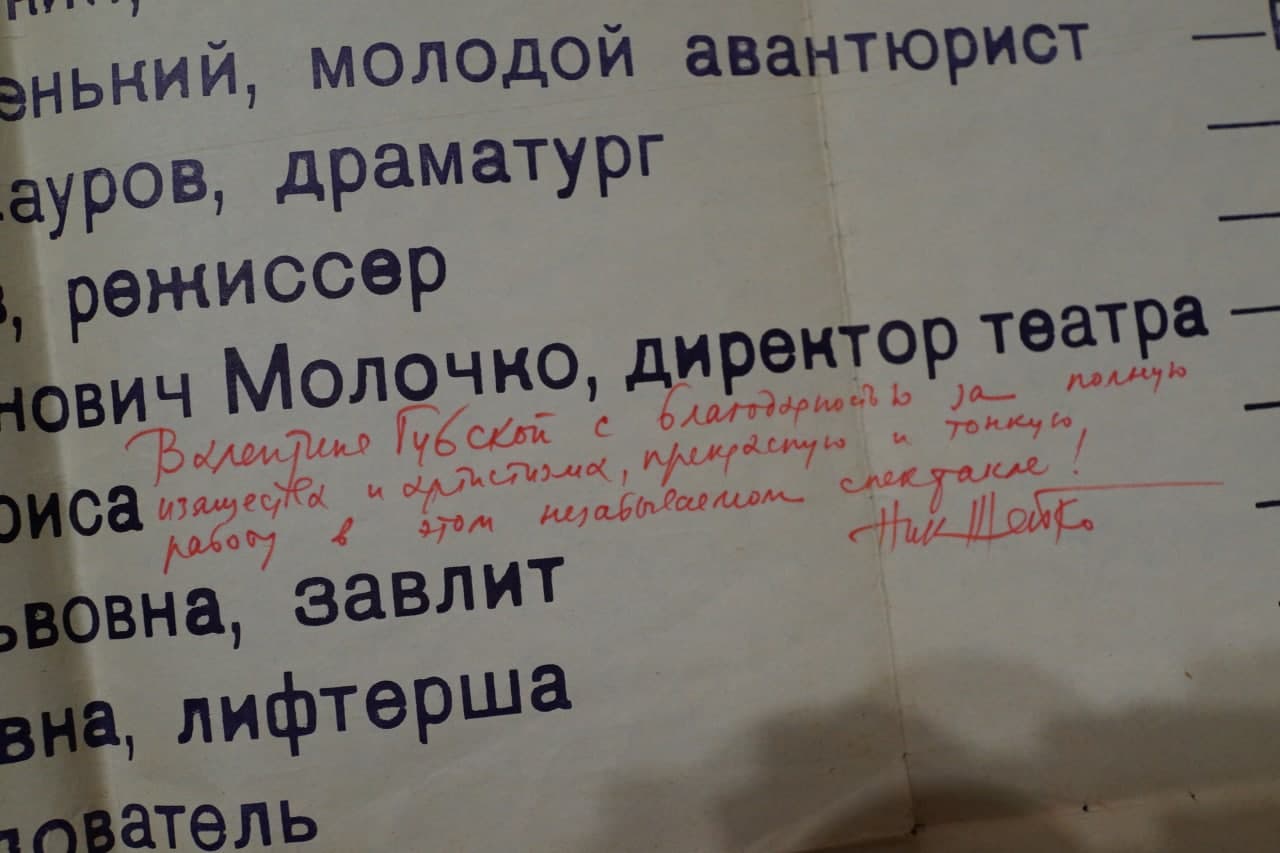 енький, молодой авантюрист —
ауров, драматург —
в, режиссер —
нович Молочко, директор театра —
Валентине Губской с благодарностью за полную
изящества и артистизма, прекрасную и тонкую,
работу в этом незабываемом спектакле!
Ник Шейко
риса —
ьвовна, завлит —
вна, лифтерша
дователь